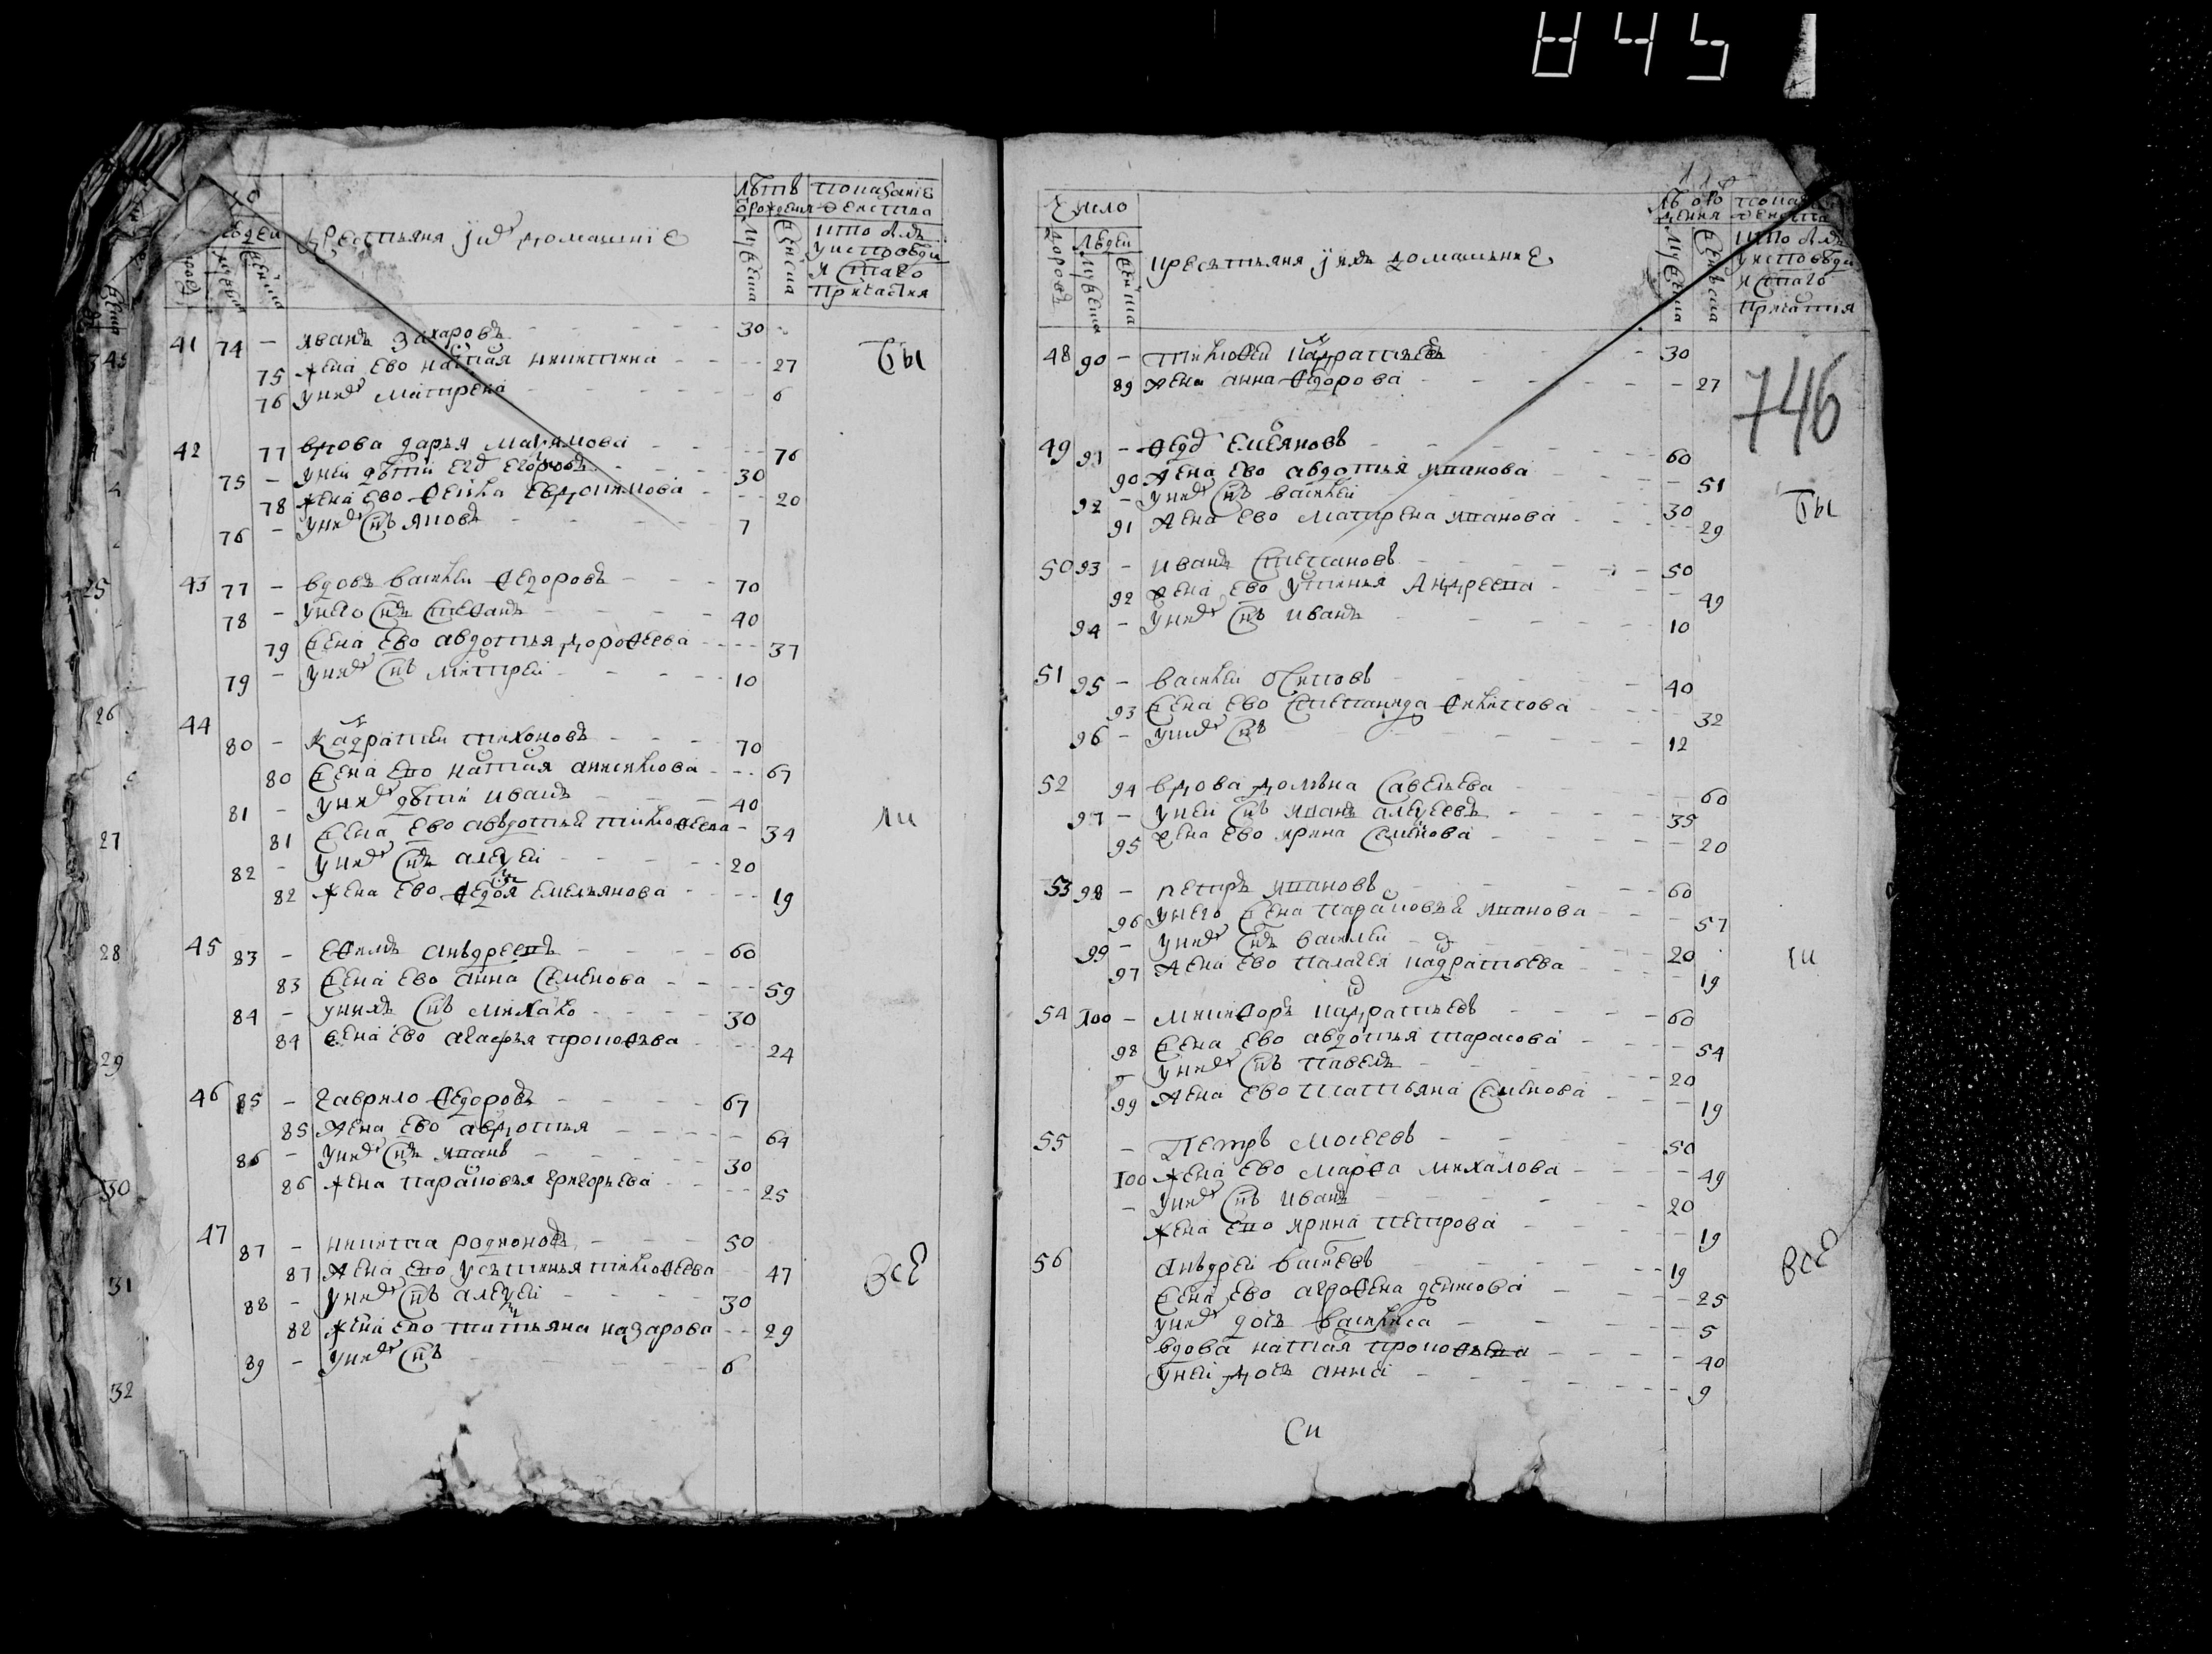 845
Лѣтъ
показание
рождения
действа
кто былъ
у исповеди
и стаго
причастия
людей
крестьяня и ихъ домашние
мужеска
женска
41 74 - иванъ Захаровъ - - - 30 -
75 жена ево настая никитина - - - 27
Бы
76 у них матрена - - - 6
42 77 вдова дарья Маѯимова - - - 76
75 - у ней дѣти егоръ егоровъ - - - 30
78 жена ево фекла евдокимова - - - 20
76 - у них снъ яковъ - - - 7
25 43 77 - вдовъ василеи федоровъ - - - 70
78 - у него снъ стефанъ - - - 40
79 жена ево авдотья дорофеева - - - 37
79 - у них снъ митреи - - - 10
26 44
80 - Кадратеи тихоновъ - - - 70
80 жена ево настая анисимова - - - 67
81 - у них дѣти иванъ - - - 40
81 жена ево авдотья тимофеева - 34
ли
27
82 - у них снъ алеѯеи - - - 20
82 жена ево федоя емельянова - - - 19
28 45 83 - ефимъ андреевъ - - - 60
83 жена ево анна семенова - - - 59
84 - у нихъ снъ михаило - - - 30
84 жена ево агафья прокофьева - - - 24
29
46 85 - гаврило федоровъ - - - 67
85 жена ево авдотья - - - 64
86 - у них снъ иванъ - - - 30
30 86 жена парасковья григорьева - - - 25
47 87 - никита родионовъ - - - 50
87 жена ево устинья тимофеева - 47
Все
31 88 - у них снъ алеѯеи - - - 30
88 жена ево татьяна назарова - - 29
89 - у них снъ - - - 6
32
Число
дворовъ
людеи
мужеска
женска
крестьяня и ихъ домашние
мужеска
женска
кто былъ
у исповеди
и стаго
причастия
48 90 - тимофеи кадратьевъ - 30
89 жена анна федорова - - - 27
746
49 91 - федоръ емеляновъ - - - 60
90 жена ево авдотья иванова - - - 51
92 - у них снъ василеи - - - 30
Бы
91 жена ево матрена иванова - - - 29
50 93 - иванъ степановъ - - - 50
92 жена ево устинья Андреева - - - 49
94 - у них снъ иванъ - - - 10
51 95 - василеи осиповъ - - - 40
93 жена ево степанида филипова - - - 32
96 - у них снъ - - - 12
52 94 вдова домна савельева - - - 60
97 - у ней снъ иванъ алеѯеевъ - - - 35
95 жена ево ирина семенова - - - 20
53 98 - петръ ивановъ - - - 60
96 у него жена парасковья иванова - - - 57
99 - у них снъ василеи - - - 20
97 жена ево палагея кадратьева - - - 19
ли
54 100 - никифоръ кадратьевъ - - - 60
98 жена ево авдотья тарасова - - - 54
- у них снъ павелъ - - - 20
99 жена ево татьяна семенова - - - 19
55 - Петръ Мосеевъ - - - 50
100 жена ево марфа михаилова - - - 49
- у них снъ иванъ - - - 20
жена ево ирина петрова - - - 19
56 андреи васильевъ - - - 19
Все
жена ево аграфена денисова - - - 25
у них дочь василиса - - - 5
вдова настая прокофьева - - - 40
у ней дочь анна - - - 9
Си